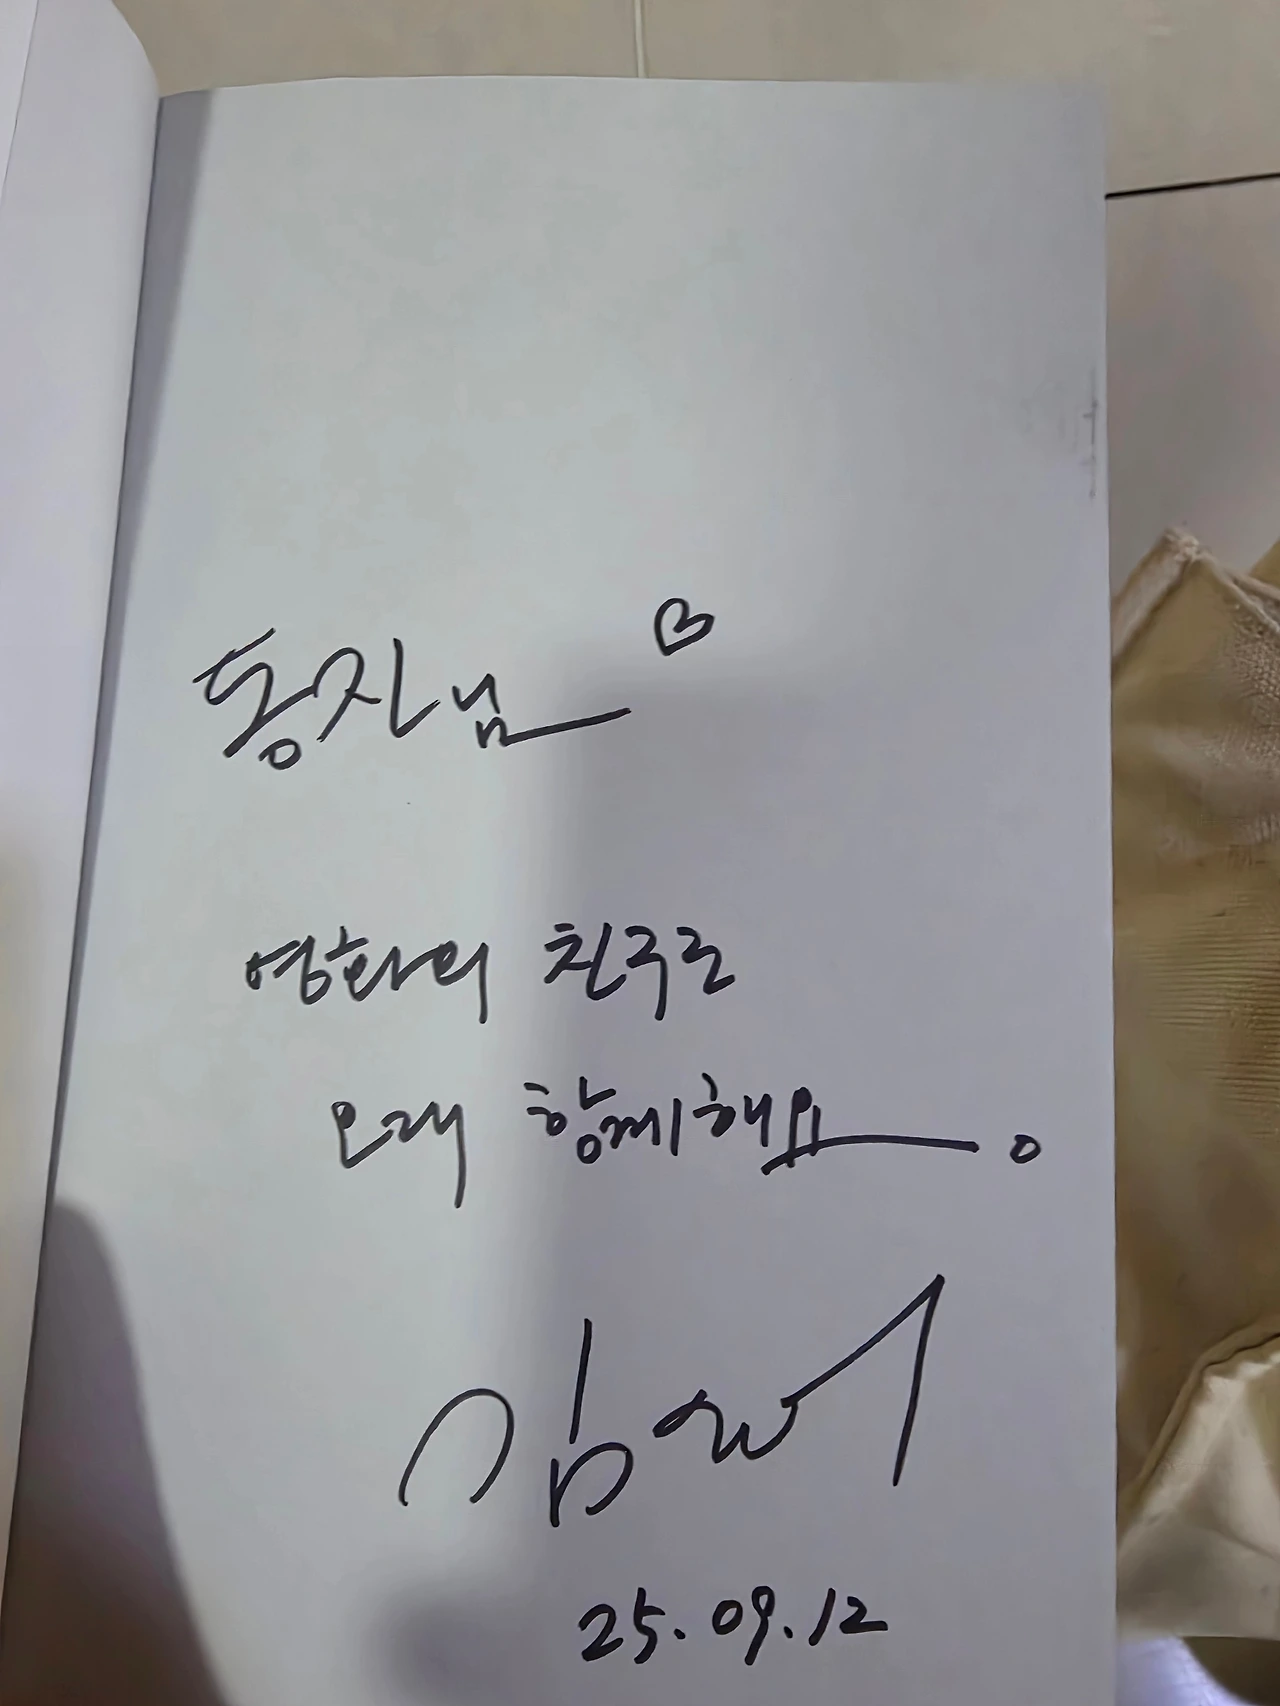 동진님 ♡
영화의 친구로
오래 함께해요.
김
25.09.12